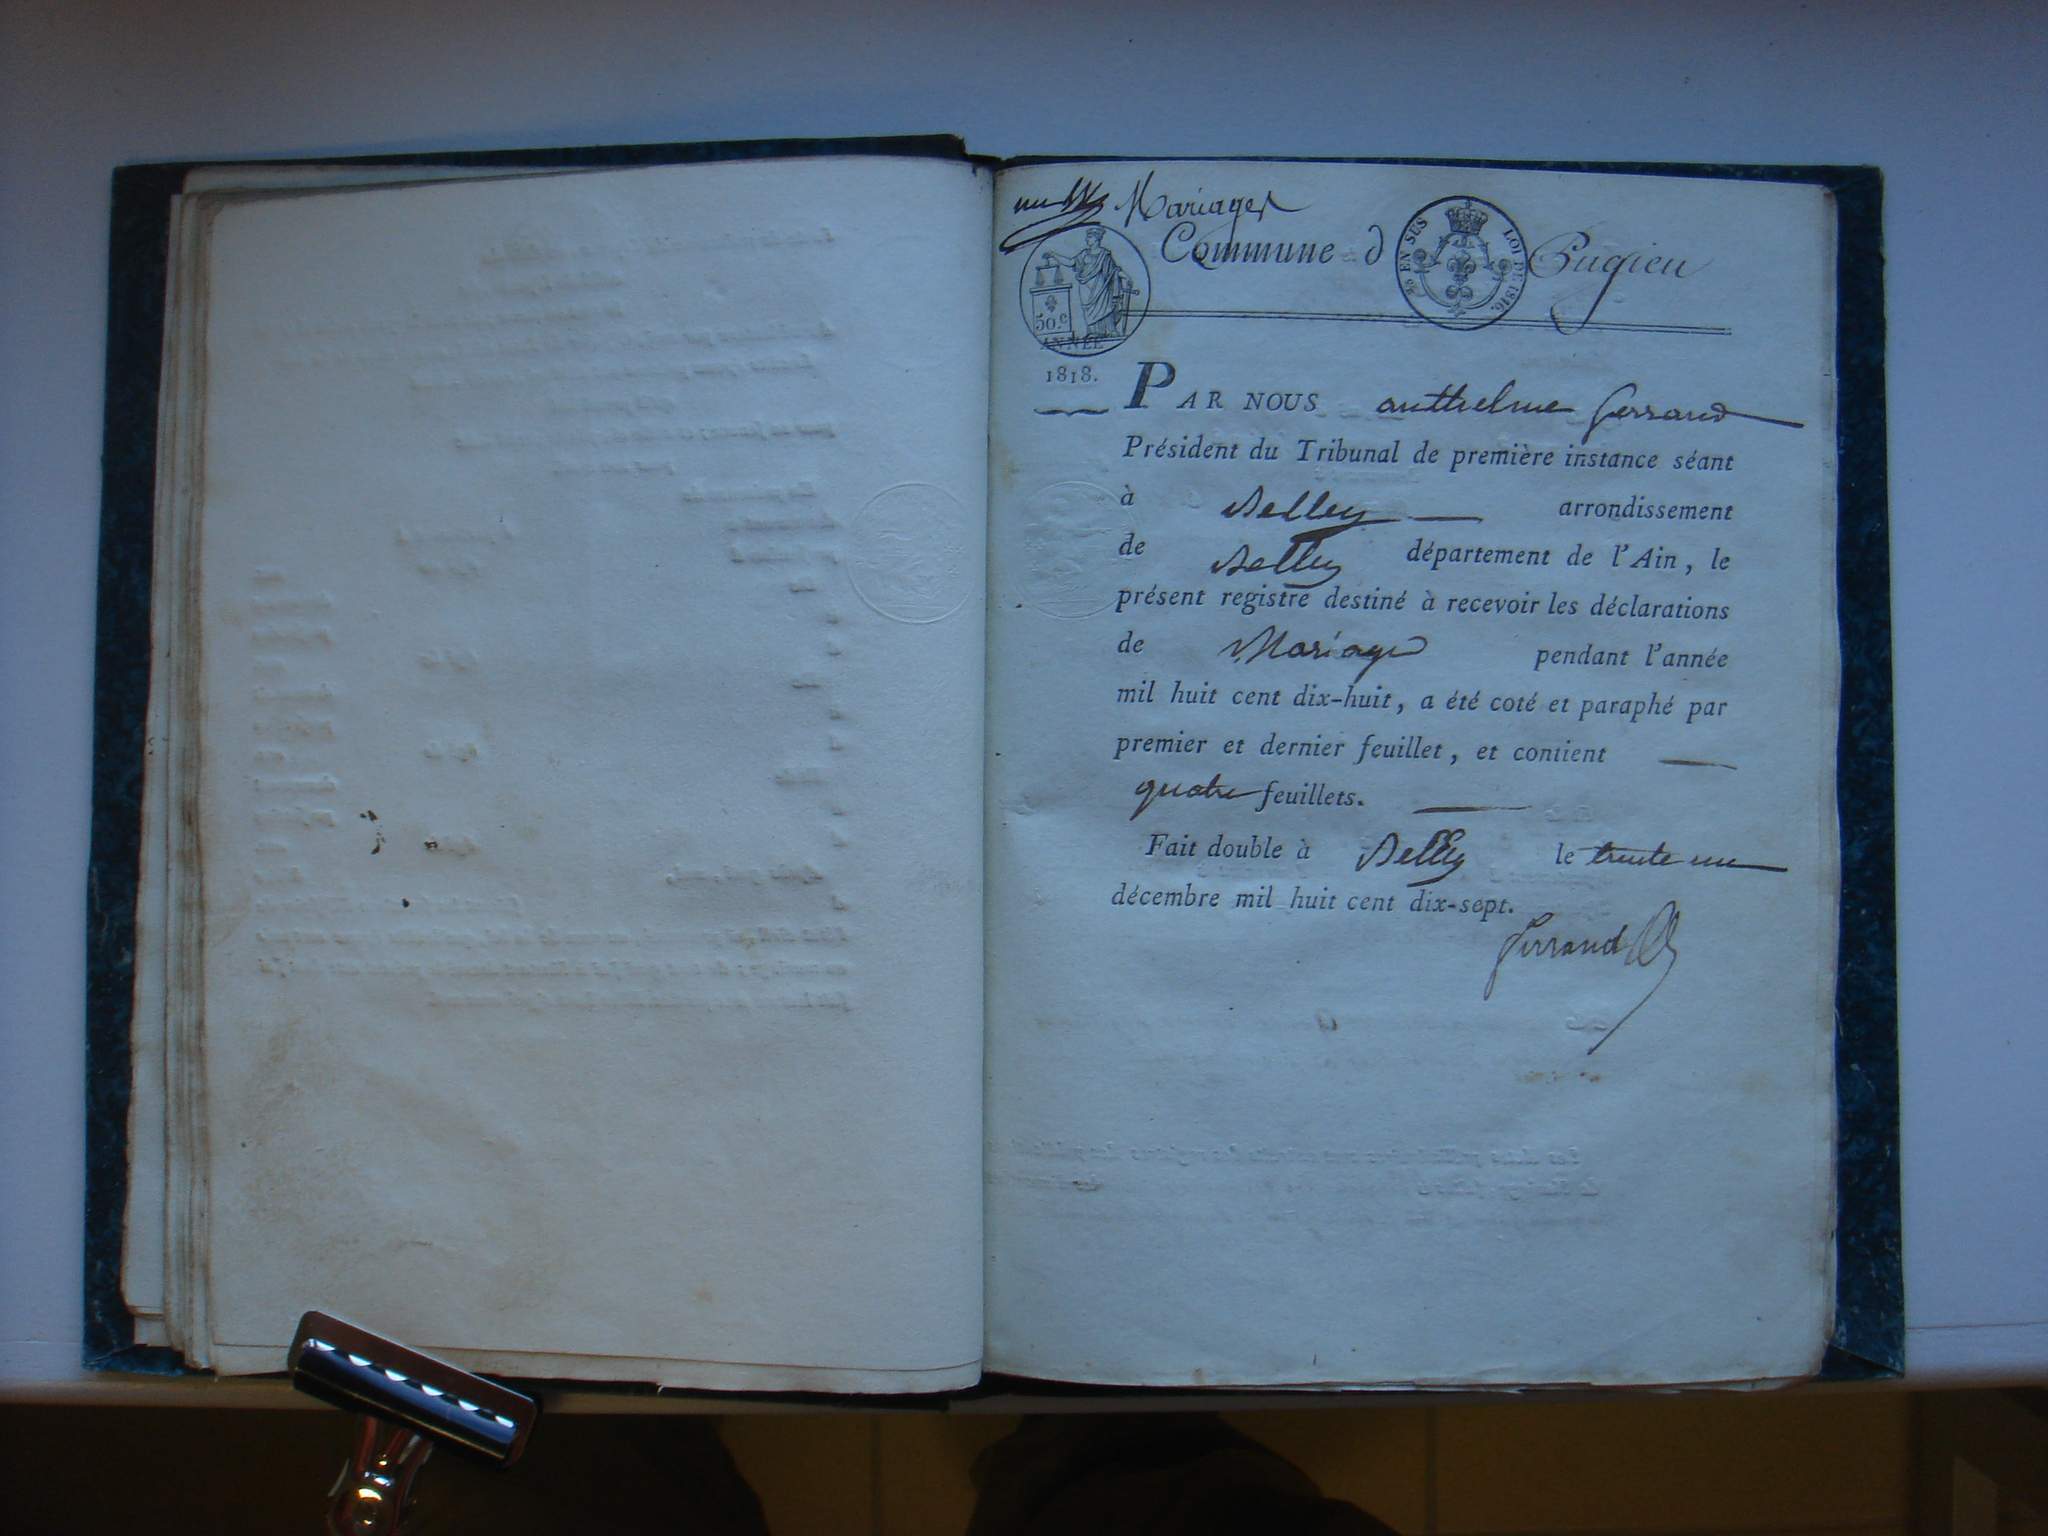 Mariages
Commune d Pugieu
EN SUS
LOI DE 1816.
50.c
ANNÉE
1818.
PAR NOUS anthelme ferrand
Président du Tribunal de première instance séant
à Belley arrondissement
de Belley département de l'Ain, le
présent registre destiné à recevoir les déclarations
de Mariage pendant l'année
mil huit cent dix-huit, a été coté et paraphé par
premier et dernier feuillet, et contient
quatre feuillets.
Fait double à Belley le trente un
décembre mil huit cent dix-sept.
ferrand